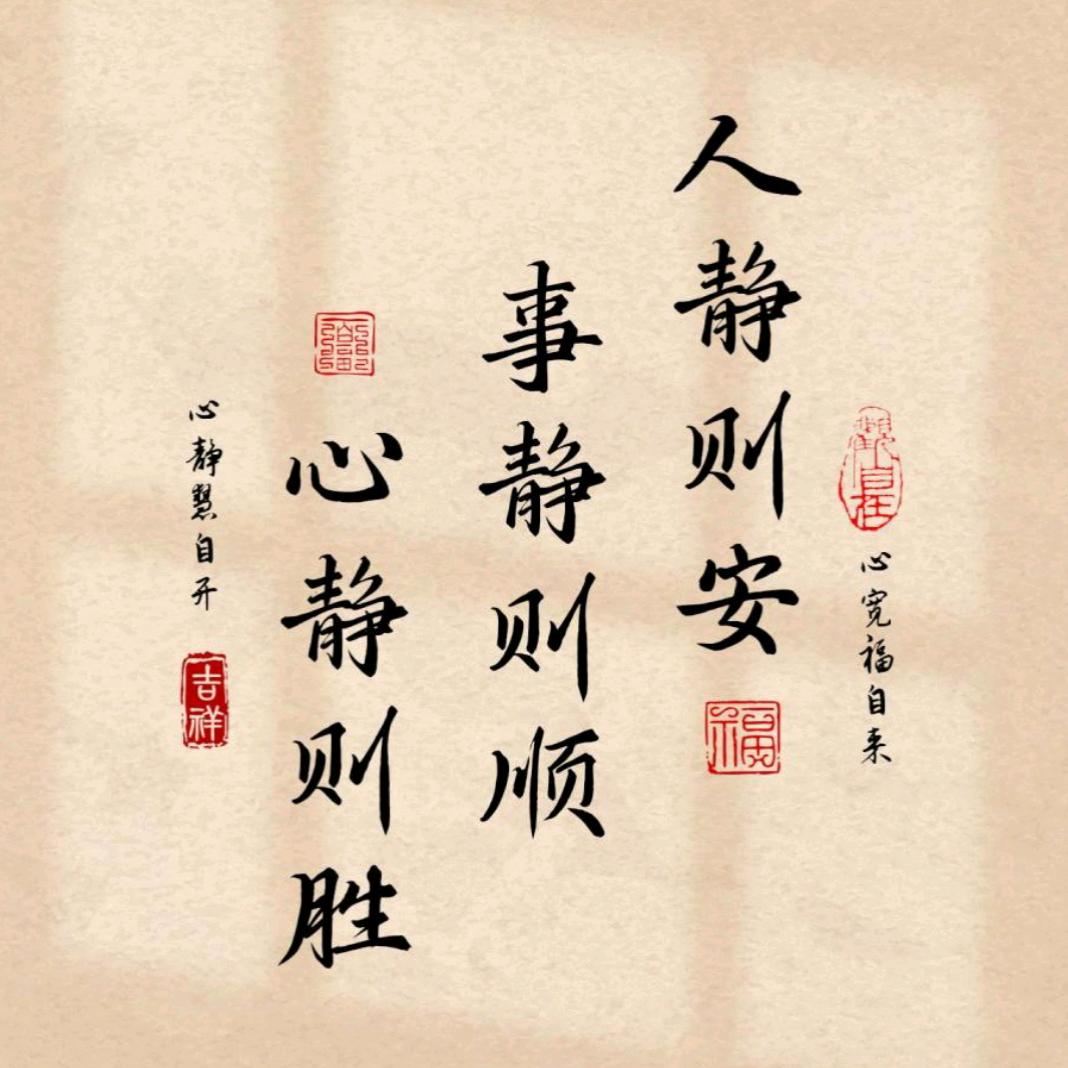 观自在
心宽福自来
人静则安
福
事静则顺
心静则胜
心静慧自开
吉祥